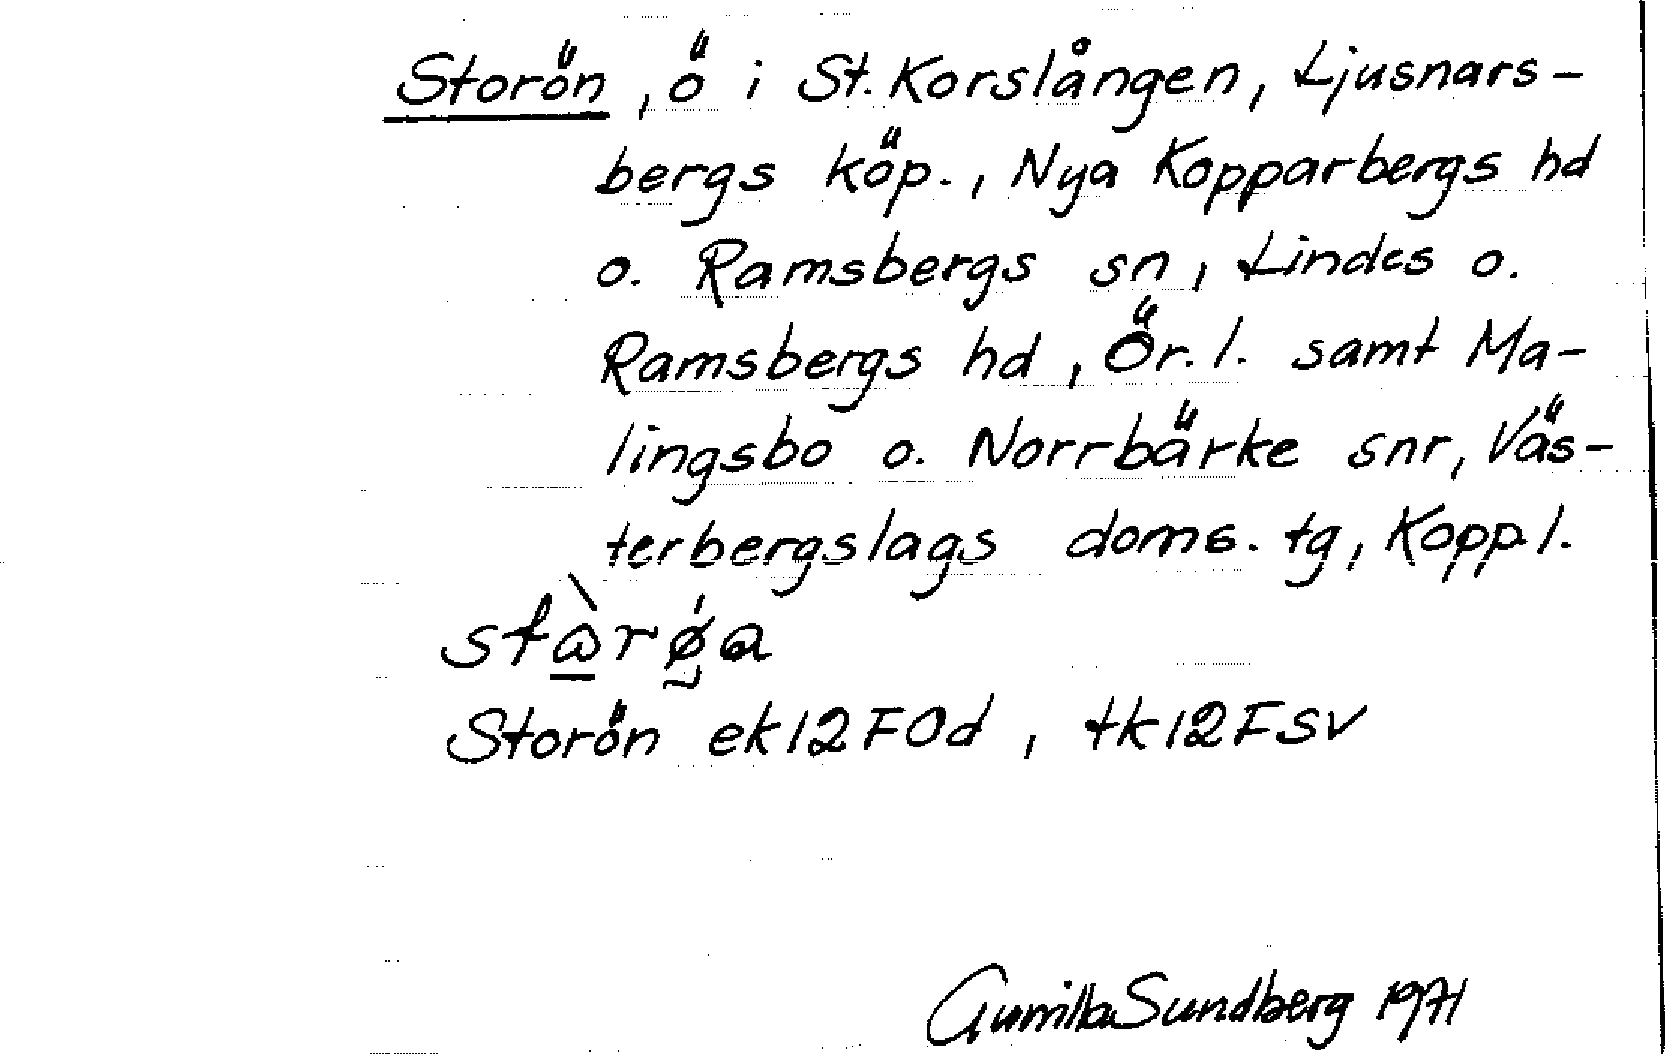 Storön, ö i St. Korslången, Ljusnars-
bergs köp., Nya Kopparbergs hd
o. Ramsbergs sn, Lindes o.
Ramsbergs hd, Ör. l. samt Ma-
lingsbo o. Norrbärke snr, Väs-
terbergslags doms. tg, Kopp. l.
Storön ek12F0d, tk12FSV
Gunilla Sundberg 1971